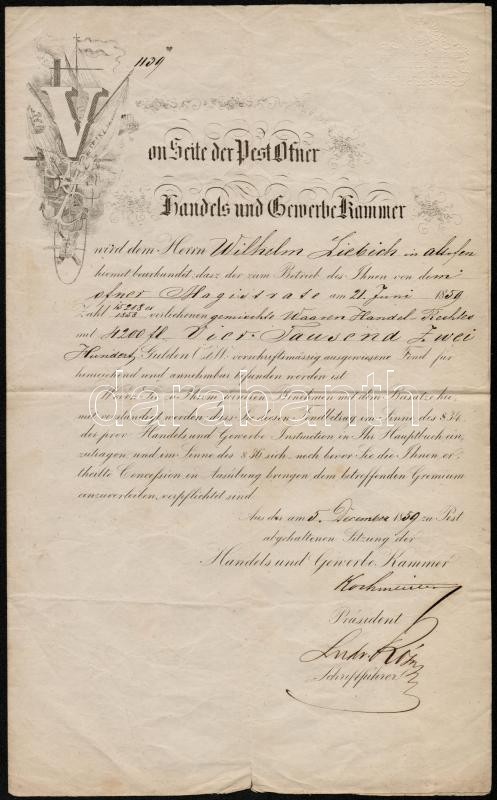 1139
Von Seite der Pest Ofner
Handels und Gewerbe Kammer
wird dem Herrn Wilhelm Liebich in altofen
hiemit beurkundet, dasz der zum Betrieb des Ihnen von dem
ofner Magistrate am 21. Juni 1859
Zahl 15208 1858 verliehenen gemischte Waaren Handel Rechtes
mit 4200 fl. Vier Tausend Zwei
Hundert Gulden vorschriftsmässig ausgewiesene Fond für
hinreichend und annehmbar befunden worden ist
Wovon Sie zu Ihrem weiteren Benehmen mit dem Beisatze hie
mit verständigt werden, dass Sie diesen Fondbetrag im Sinne des §
der prov Handels und Gewerbe Instruction in Ihr Hauptbuch ein
zutragen, und im Sinne des § 36 sich noch bevor Sie die Ihnen er
theilte Concession in Ausübung bringen dem betreffenden Gremium
einzuverleiben, verpflichtet sind
Aus der am 5. December 1859 zu Pest
abgehaltenen Sitzung der
Handels und Gewerbe Kammer
Kochmeister
Präsident
Schriftführer
darabanth
www.darabanth.com